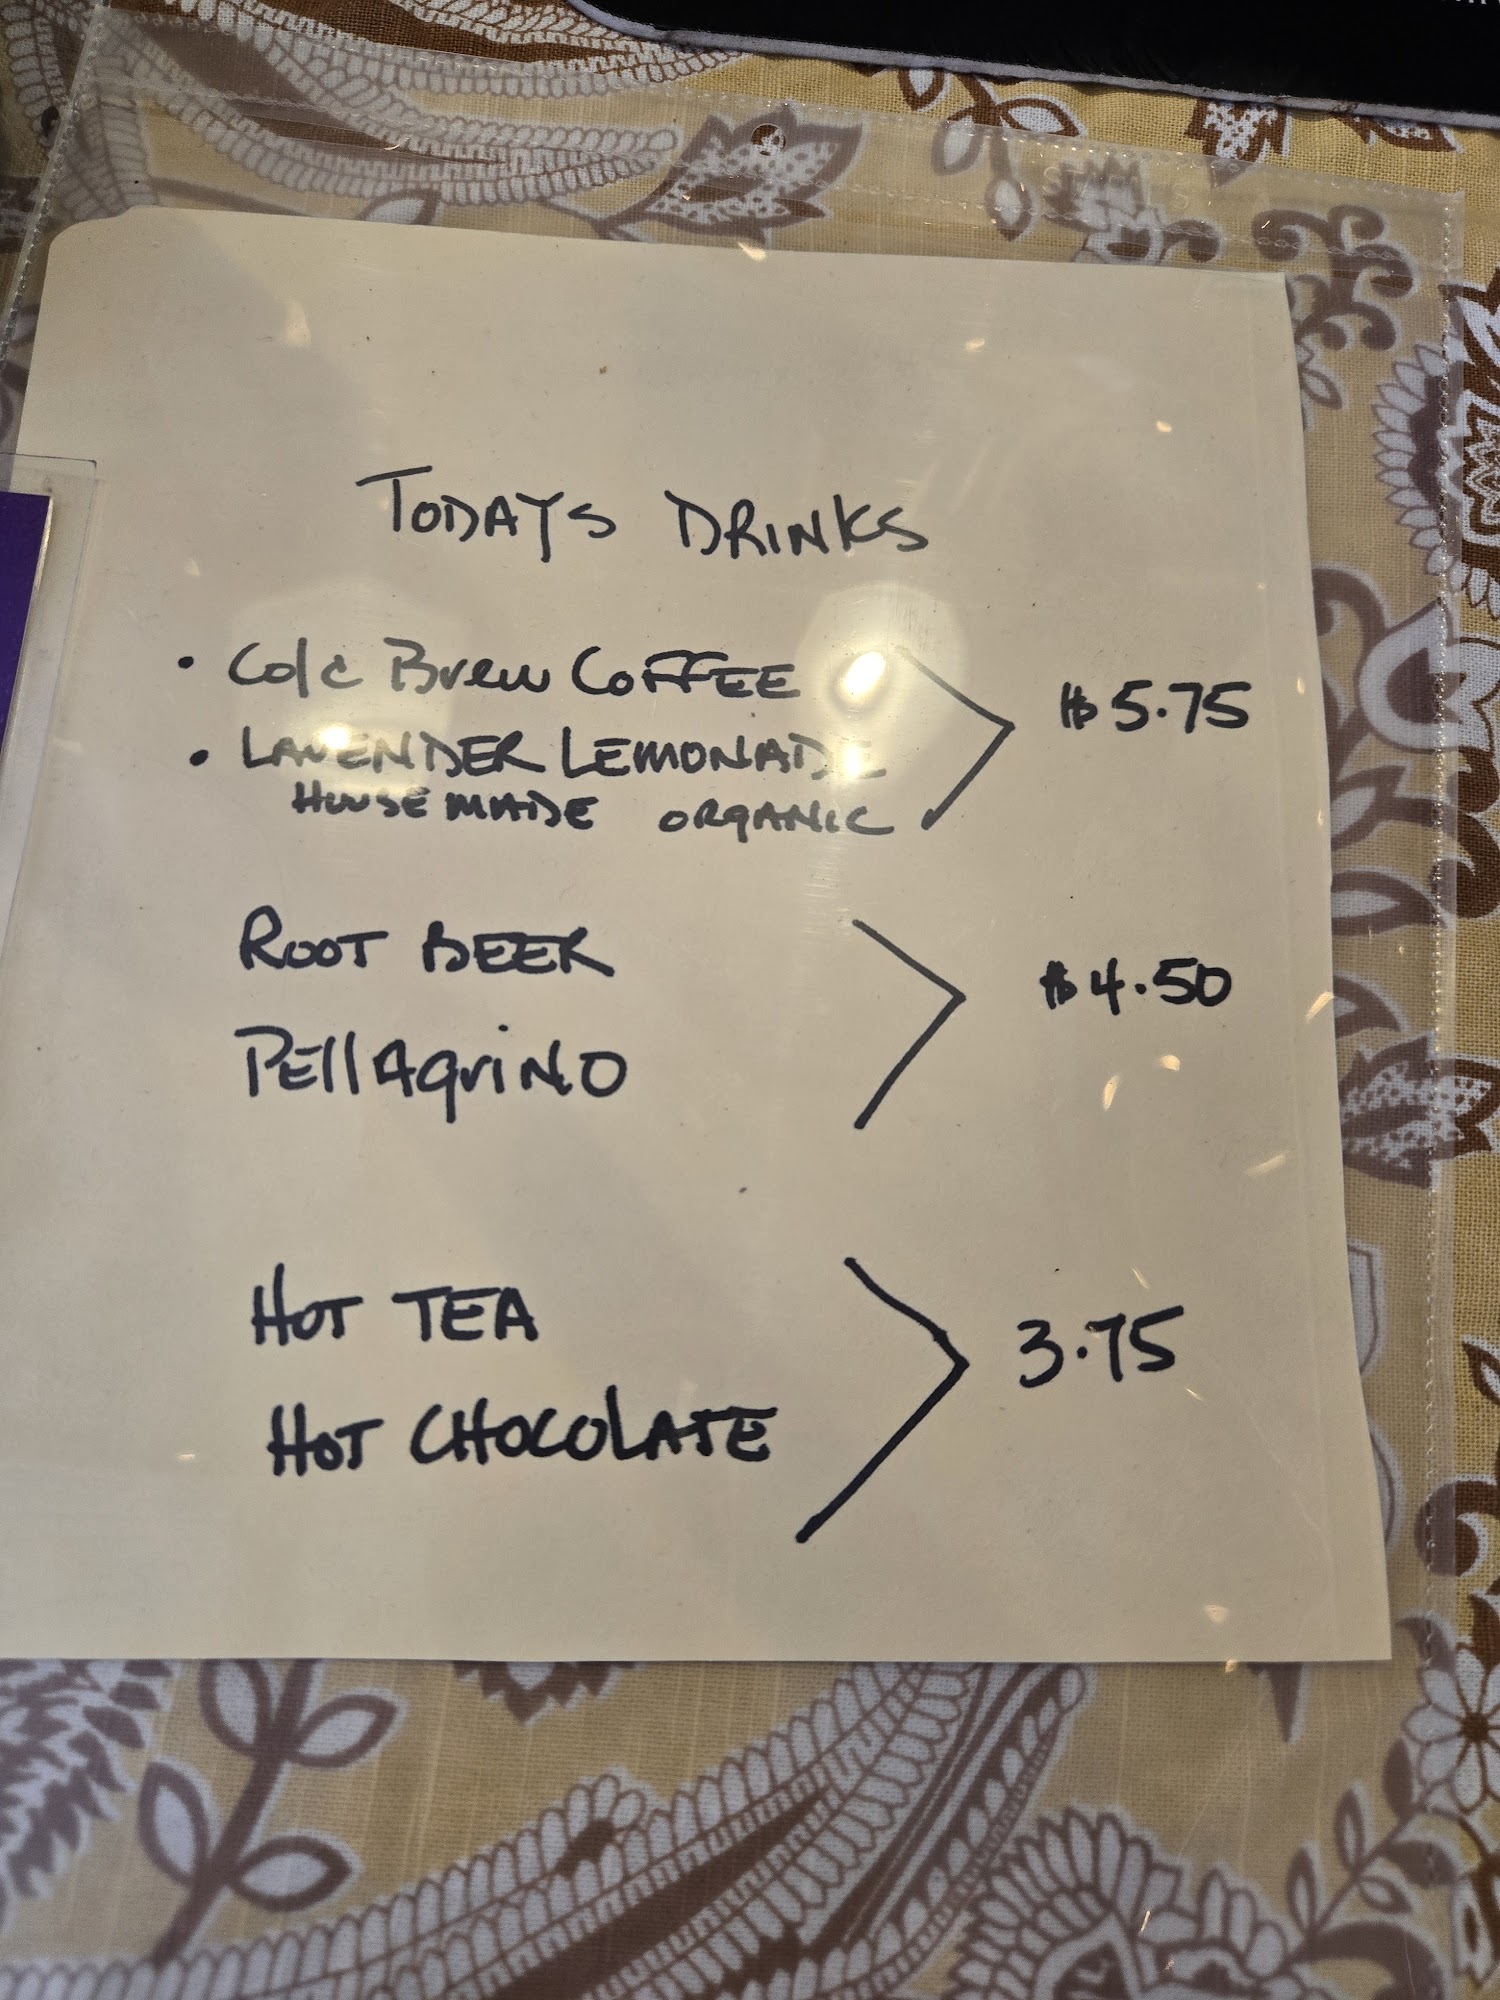 TODAYS DRINKS
• Cold Brew COFFEE
• LAVENDER LEMONADE
HOUSEMADE ORGANIC
$5.75
ROOT BEER
PEllAgriNO
$4.50
HOT TEA
HOT CHOCOLATE
3.75